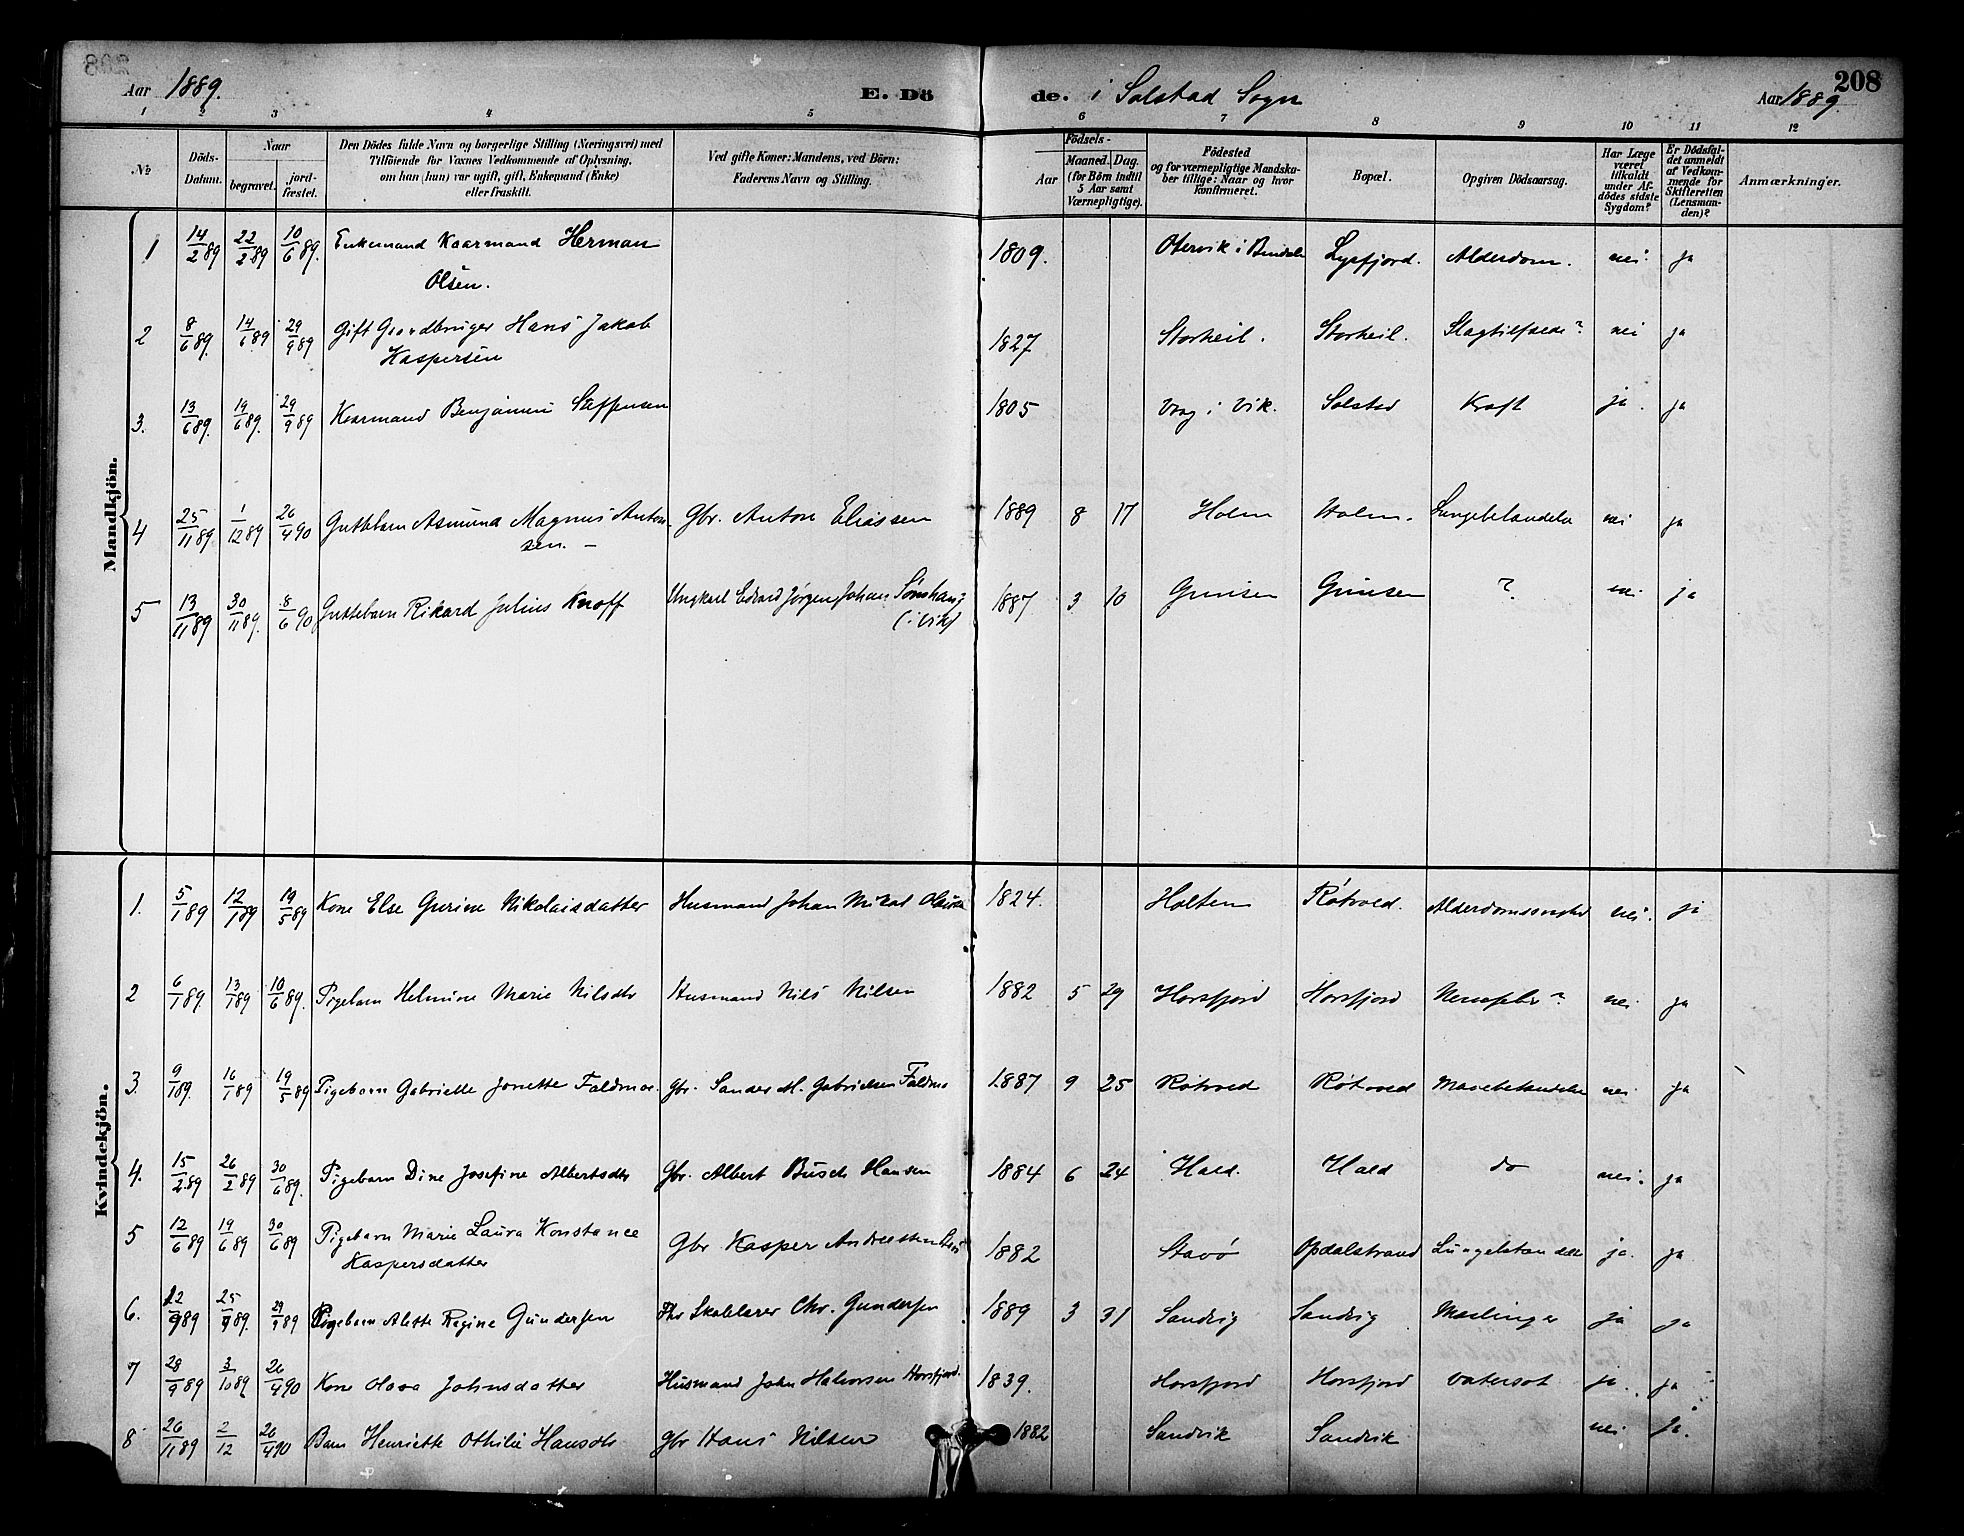 Aar 1889. E. Dö de. i Solstad Sogn Aar 1889. 208
1 2 3 4 5 6 7 8 9 10 11 12
No
Döds-Datum.
Naar
begravet.
jord-fæstet.
Den Dödes fulde Navn og borgerlige Stilling (Næringsvei) med
Tilföiende for Voxnes Vedkommende af Oplysning,
om han (hun) var ugift, gift, Enkemand (Enke)
eller fraskilt.
Ved gifte Koner: Mandens, ved Börn:
Faderens Navn og Stilling.
Födsels-
Aar
Maaned. Dag.
(for Börn indtil
5 Aar samt
Værnepligtige).
Födested
og for værnepligtige Mandska-
ber tillige: Naar og hvor
konfirmeret.
Bopæl.
Opgiven Dödsaarsag.
Har Læge
været
tilkaldt
under Af-
dödes sidste
Sygdom?
Er Dödsfal-
det anmeldt
af Vedkom-
mende for
Skifteretten
(Lensman-
den)?
Anmærkninger.
Mandkjön.
1 14/2 89 22/2 89 10/6 89. Enkemand Kaarmand Herman 1809. Otervik i Bindalen Lysfjord. Alderdom. nei. ja
Olsen.
2 8/6 89. 14/6 89 29/9 89 Gift Gaardbruger Hans Jakob 1827 Storheil. Storheil. Slagtilfælde? nei ja
Kaspersen
3. 13/6 89. 19/6 89. 29/9 89 Kaarmand Benjamin Steffensen 1805 Vaag i Vik. Solstad Kræft ja. ja
4 25/11 89 1/12 89 26/4 90 Guttebarn Asmund Magnus Anton Gbr. Anton Eliassen 1889 8 17 Holm Holm. Lungebetændelse nei ja
sen. —
5 13/11 89 30/11 89. 8/6 90 Guttebarn Rikard Julius Knoff Ungkarl Edvard Jørgen Johan 1887 3 10 Grimsen Grimsen ? nei ja
(i Vik)
Kvindekjön.
1. 5/1 89 12/1 89 19/5 89 Kone Else Gurine Nikolaisdatter Husmand Johan Mikal Olausen 1824. Holten Røtvold. nei. ja
2 6/1 89. 13/1 89 10/6 89. Pigebarn Helmine Marie Nilsdtr Husmand Nils Nilsen 1882 5 29 Horsfjord Horsfjord Nervefeber? nei ja
3. 9/1 89. 16/1 89 19/5 89 Pigebarn Gabrielle Jonette Faldmo. Gbr. Sander M. Gabrielsen Faldmo 1887 9 25 Røtvold Røtvold Mavebetændelse nei ja
4. 15/2 89 26/2 89 30/6 89. Pigebarn Dine Josefine Albertsdtr Gbr. Albert Busch Hansen 1884 6 24 Hald. Hald do nei. ja
5 12/6 89 19/6 89 30/6 89 Pigebarn Marie Laura Konstance Gbr Kasper Andreassen 1882 Stavø Opdalstrand Lungebetændelse ja. ja
Kaspersdatter
6. 12/9 89 25/9 89. 29/9 89 Pigebarn Alette Regine Gundersen Fhv Skolelærer Chr. Gundersen 1889 3 31 Sandvig Sandvig Meslinger ja ja
7 28/9 89 3/10 89 26/4 90 Kone Olava Johnsdatter Husmand John Halvorsen Horsfjord. 1839. Horsfjord Horsfjord Vatersot ja. ja
8 26/11 89 2/12 26/4 90 Barn Henriette Othilie Hansdtr Gbr Hans Nilsen 1882 Sandvik Sandvik nei ja.